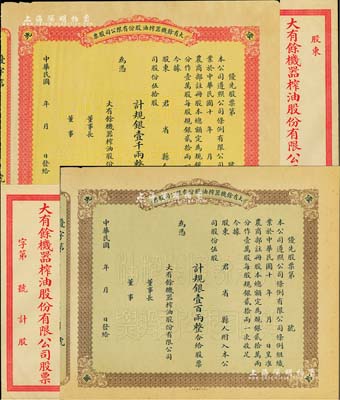 大有餘機器榨油股份有限公司股票
優先股票第 號
本公司遵照公司條例有限公司條例組織
業於中華民國十 年 月 日呈准
農商部註冊股本總額定為規銀貳十萬兩
分作壹萬股每股規銀貳拾兩一次收足
今據 君 省 縣人附入本公
司股份伍拾股
計規銀壹千兩整
為憑
大有餘機器榨油股份有限公司
董事長
董事
中華民國 年 月 日發給
股東
大有餘機器榨油股份有限公司
大有餘機器榨油股份有限公司股票
字第 號計 股
優先股票第 號
本公司遵照公司條例有限公司條例組織
業於中華民國十 年 月 日呈准
農商部註冊股本總額定為規銀貳十萬兩
分作壹萬股每股規銀貳拾兩一次收足
股東 君 省 縣人附入本公
司股份伍股
計規銀壹百兩整合給股票
為憑
大有餘機器榨油股份有限公司
董事長
董事
中華民國 年 月 日發給